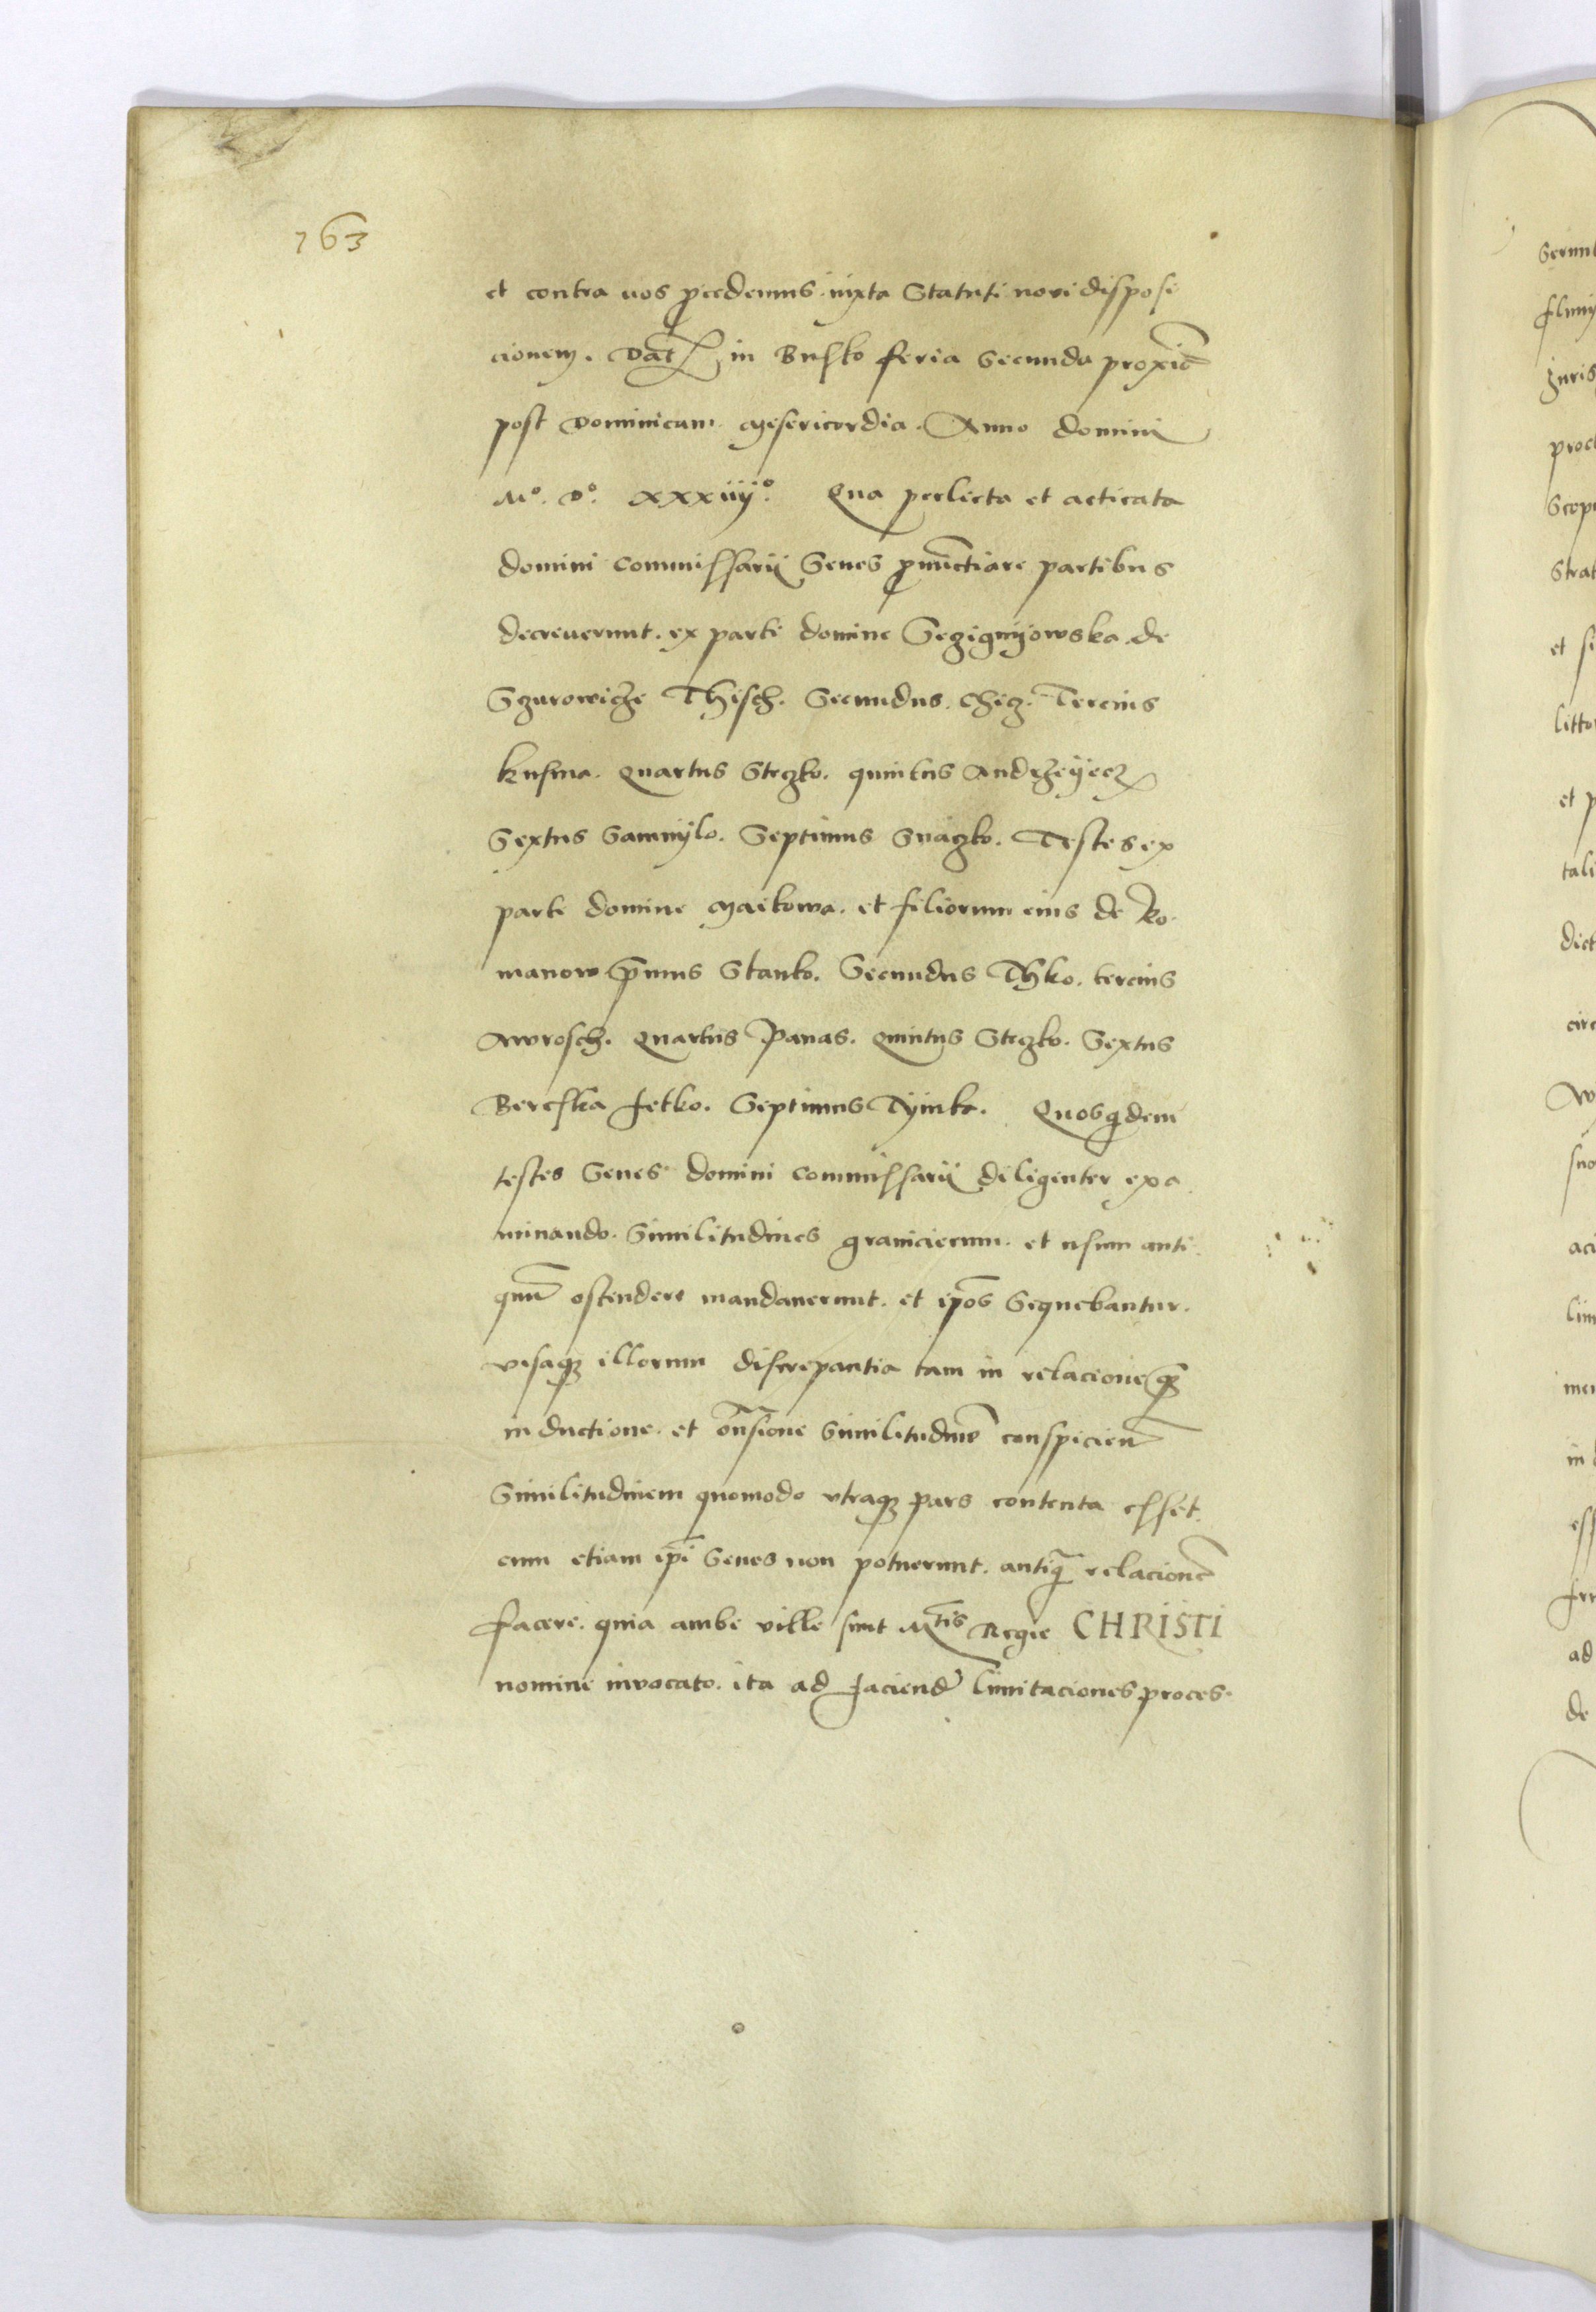 163
et contra uos pcedemus iuxta Statuti noui disposi
cionem. Dat in Busko feria Secunda proxi͞e
post Dominicam Misericordia. Anno domini
Mº. Dº. xxxiiijº. Qua perlecta et acticata
domini commissarij Senes pnu͞ctiare partibus
decreuerunt. ex parte domine de
Sczurowicze Thisch. Secundus. Checz. Tercius
kusma. Quartus Steczko. quintus Andrzeyecz
Sextus Samuylo. Septimus Suaczko. Testes ex
parte domine Maikowa. et filiorum eius de Ro
manow p͞mus Stanko. Secundus Thko. tercius
Awrosch. Quartus Panas. Quintus Steczko. Sextus
Bereska fetko. Septimus Tymko. Quosqdem
testes Senes domini commissarij diligenter exa
minando. Similitudines granicierum. et usum anti
quu͞ ostendere mandauerunt. et ip͞os Sequebantur.
visaq illorum discrepantia tam in relacione q͞
in ductione. et on͞sione Similitudine͞ conspicien͞
Similitudinem quomodo vtraq pars contenta esset.
cum etiam ip͞i Senes non potuerunt. antiq͞ relacione͞
facere. quia ambe ville sunt Mtis Regie CHRISTI
nomine inuocato. ita ad faciend limitaciones proces.